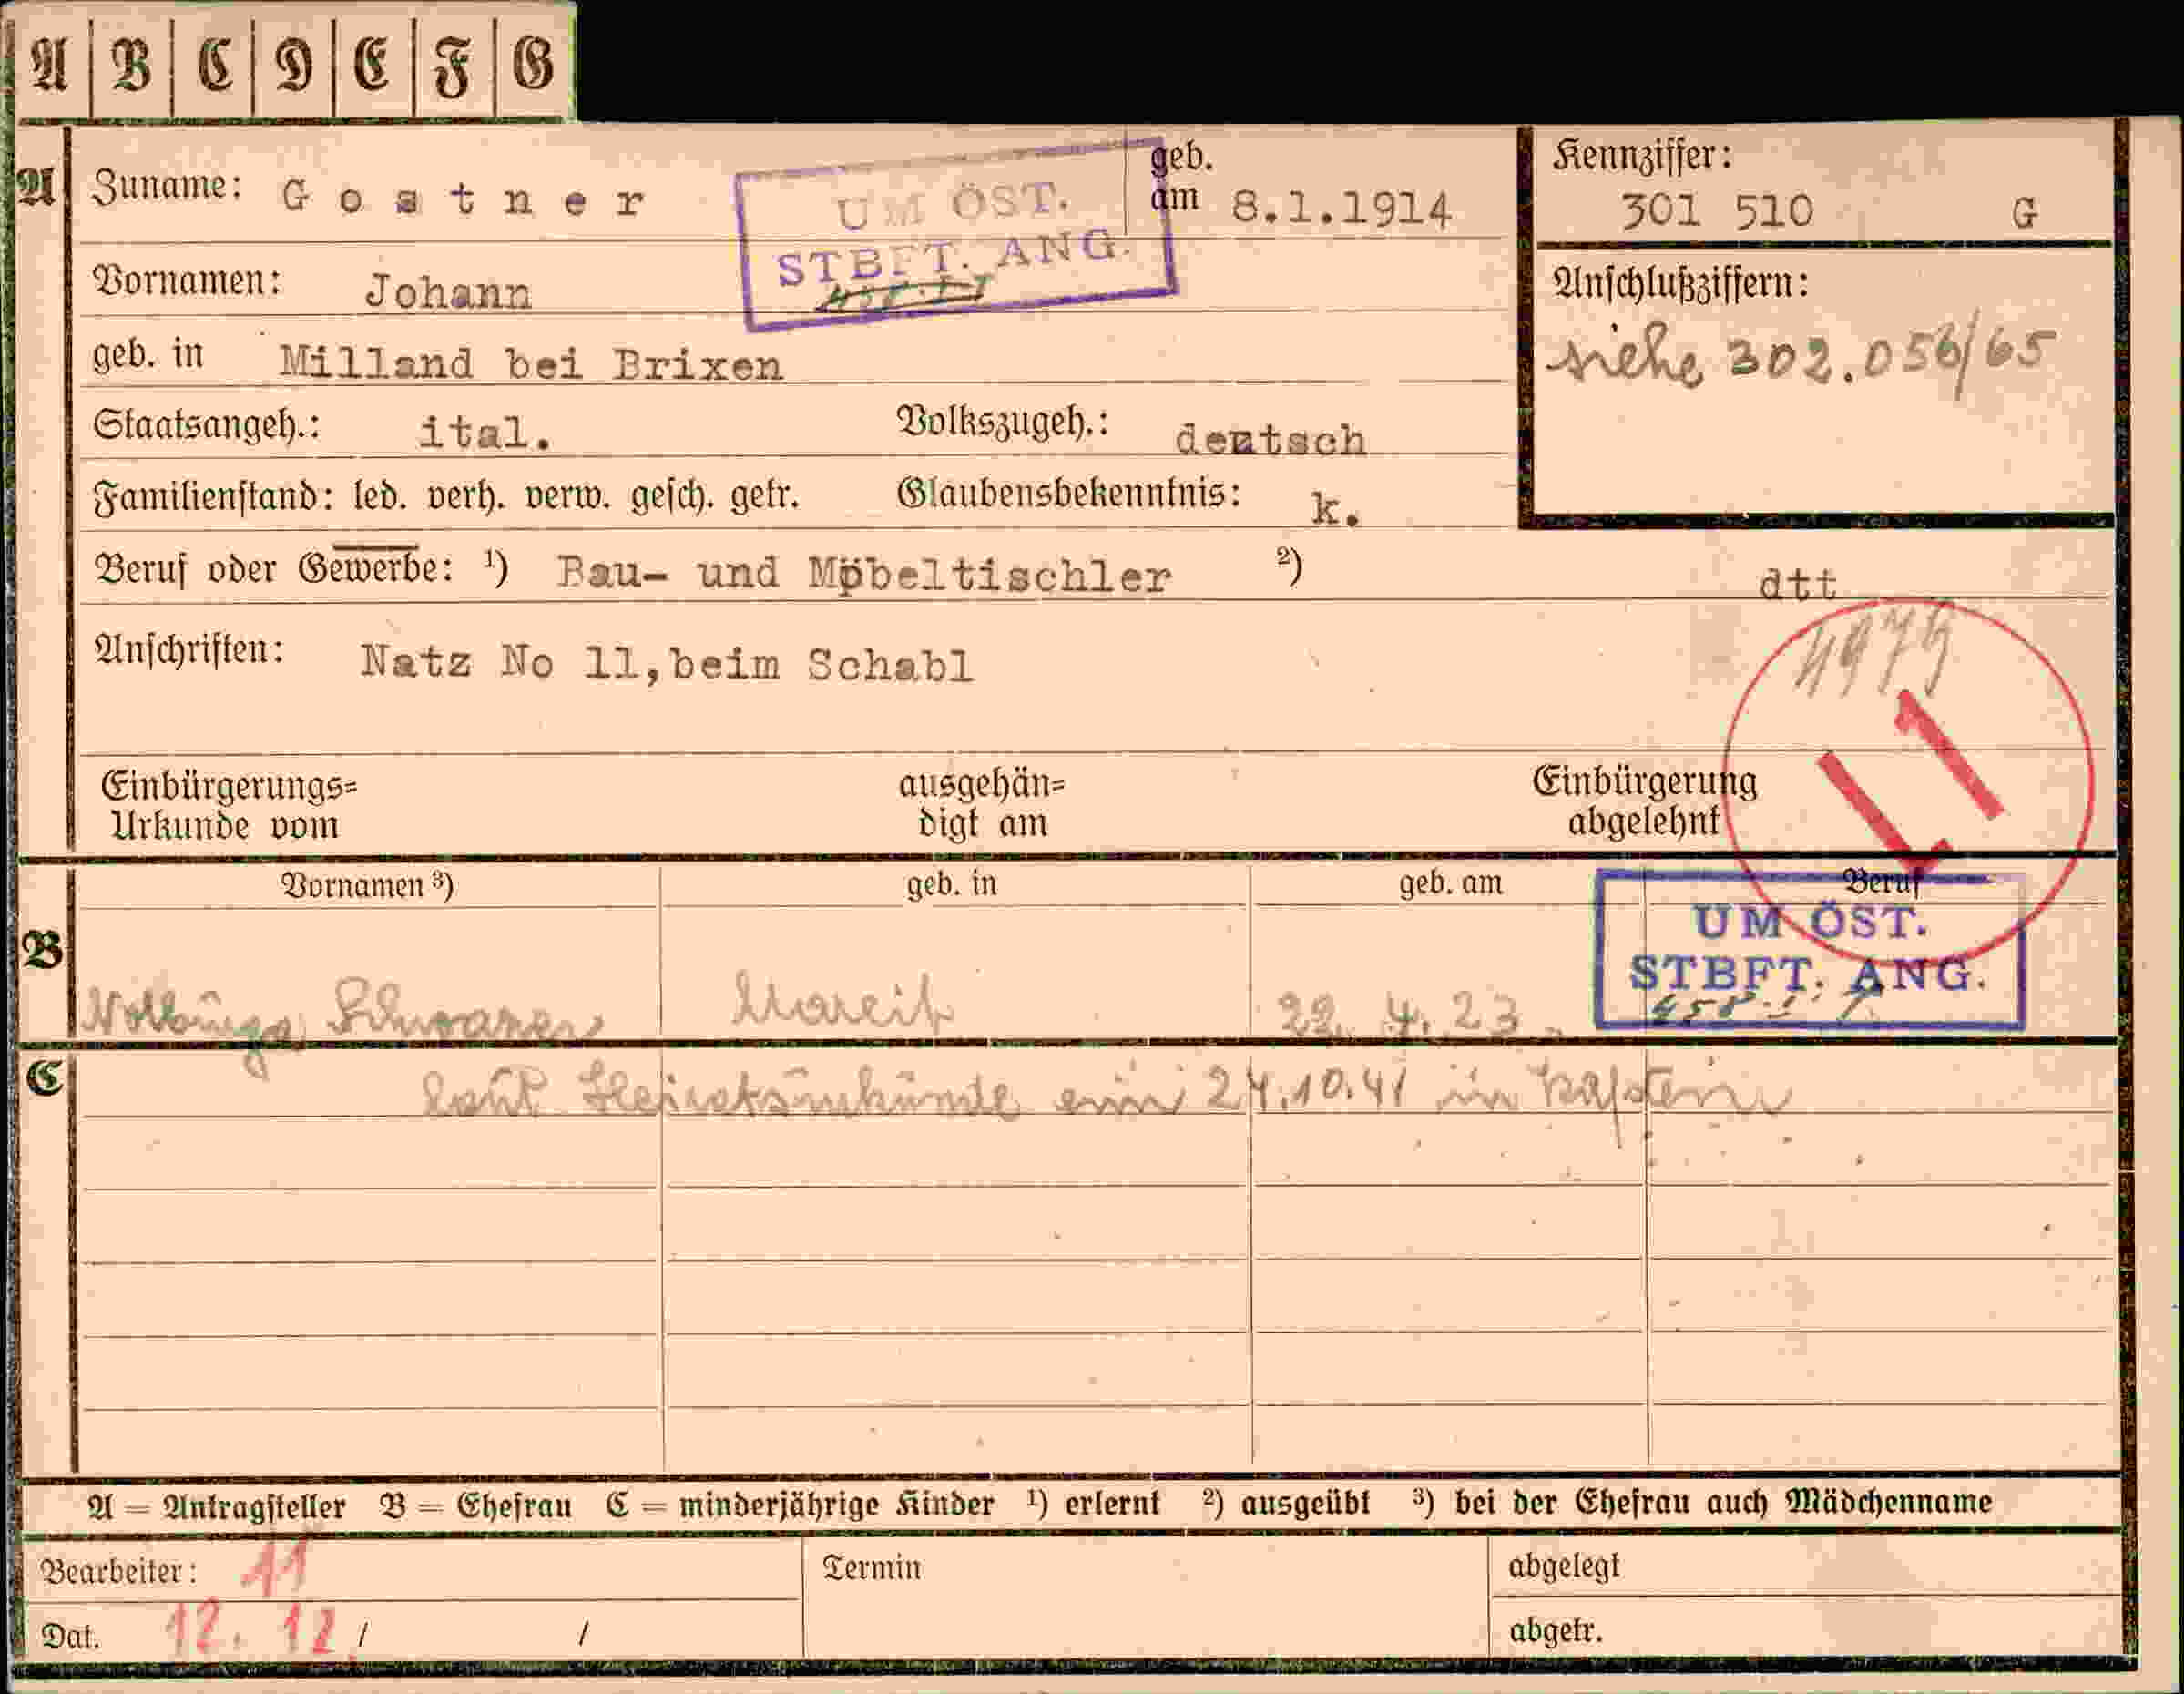 A B C D E F G
A Zuname: Gostner geb. am 8.1.1914
UM ÖST.
STBFT. ANG.
Kennziffer:
301 510 G
Vornamen: Johann
Anschlußziffern:
siehe 302.056/65
geb. in Milland bei Brixen
Staatsangeh.: ital. Volkszugeh.: deutsch
Familienstand: led. verh. verw. gesch. getr. Glaubensbekenntnis: k.
Beruf oder Gewerbe: ¹) Bau- und Möbeltischler ²) dtt
Anschriften: Natz No 11, beim Schabl
Einbürgerungs= Urkunde vom ausgehän= digt am Einbürgerung abgelehnt
Vornamen ³) geb. in geb. am Beruf
UM ÖST.
STBFT. ANG.
B Mareit 22. 4. 23
C laut Heiratsurkunde 24.10.41 in
A = Antragsteller B = Ehefrau C = minderjährige Kinder ¹) erlernt ²) ausgeübt ³) bei der Ehefrau auch Mädchenname
Bearbeiter: 11 Termin abgelegt
Dat. 12. 12. / / abgetr.